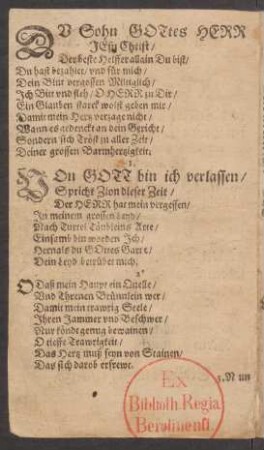 DV Sohn GOttes HERR
JEsu Christ/
Der beste Helffer allain Du bist/
Du hast bezahlet/ vnd für mich/
Dein Blut vergossen Miltiglich/
Ich Bin vnd fleh/ O HERR zu Dir/
Ein Glauben starck wolst geben mir/
Damit mein Hertz verzage nicht/
Wann es gedenckt an dein Gericht/
Sondern sich Tröst in aller Zeit/
Deiner grossen Barmhertzigkeit.
1.
VOn GOTT bin ich verlassen/
Spricht Zion dieser Zeit/
Der HERR hat mein vergessen/
In meinem grossen Leyd/
Nach Turtel Täubleins Arte/
Einsamb bin worden Ich/
Hernals du GOttes Garte/
Dein Leyd betrübet mich.
2.
O Daß mein Haupt ein Quelle/
Vnd Threnen Brünnlein wer/
Damit mein trawrig Seele/
Ihren Jammer vnd Beschwer/
Nur köndt genug bewainen/
O diesse Trawrigkeit/
Das Hertz muß seyn von Stainen/
Das sich darob erfrewe.
3. N un
Ex
Biblioth. Regia
Berolinensi.